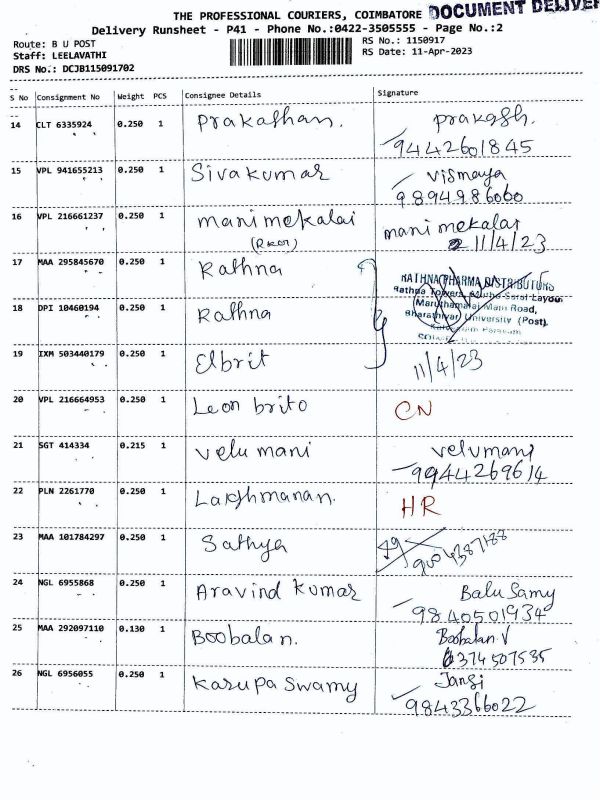 THE PROFESSIONAL COURIERS, COIMBATORE DOCUMENT DELIVER
Delivery Runsheet - P41 - Phone No.:0422-3505555 - Page No.:2
Route: B U POST
Staff: LEELAVATHI
DRS No.: DCJB115091702
RS No.: 1150917
RS Date: 11-Apr-2023
S No Consignment No Weight PCS Consignee Details Signature
14 CLT 6335924 0.250 1 Prakathan. prakash.
9442601845
15 VPL 941655213 0.250 1 Sivakumar Vismaya
9894986060
16 VPL 216661237 0.250 1 manimekalai manimekalai
11/4/23
17 MAA 295845670 0.250 1 Rathna
RATHNA PHARMA DISTRIBUTORS
Rathna Towers,
Layout
Maruthamalai Main Road,
Bharathiyar University (Post),
18 DPI 10460194 0.250 1 Rathna
19 IXM 503440179 0.250 1 Elbrit 11/4/23
20 VPL 216664953 0.250 1 Leon brito CN
21 SGT 414334 0.215 1 velu mani velumani
9944269614
22 PLN 2261770 0.250 1 Lakshmanan. HR
23 MAA 101784297 0.250 1 Sathya
24 NGL 6955868 0.250 1 Aravind kumar Balu Samy
9840501934
25 MAA 292097110 0.130 1 Boobalan. Boobalan V
6374507535
26 NGL 6956055 0.250 1 Karupa Swamy Jangi
9843366022